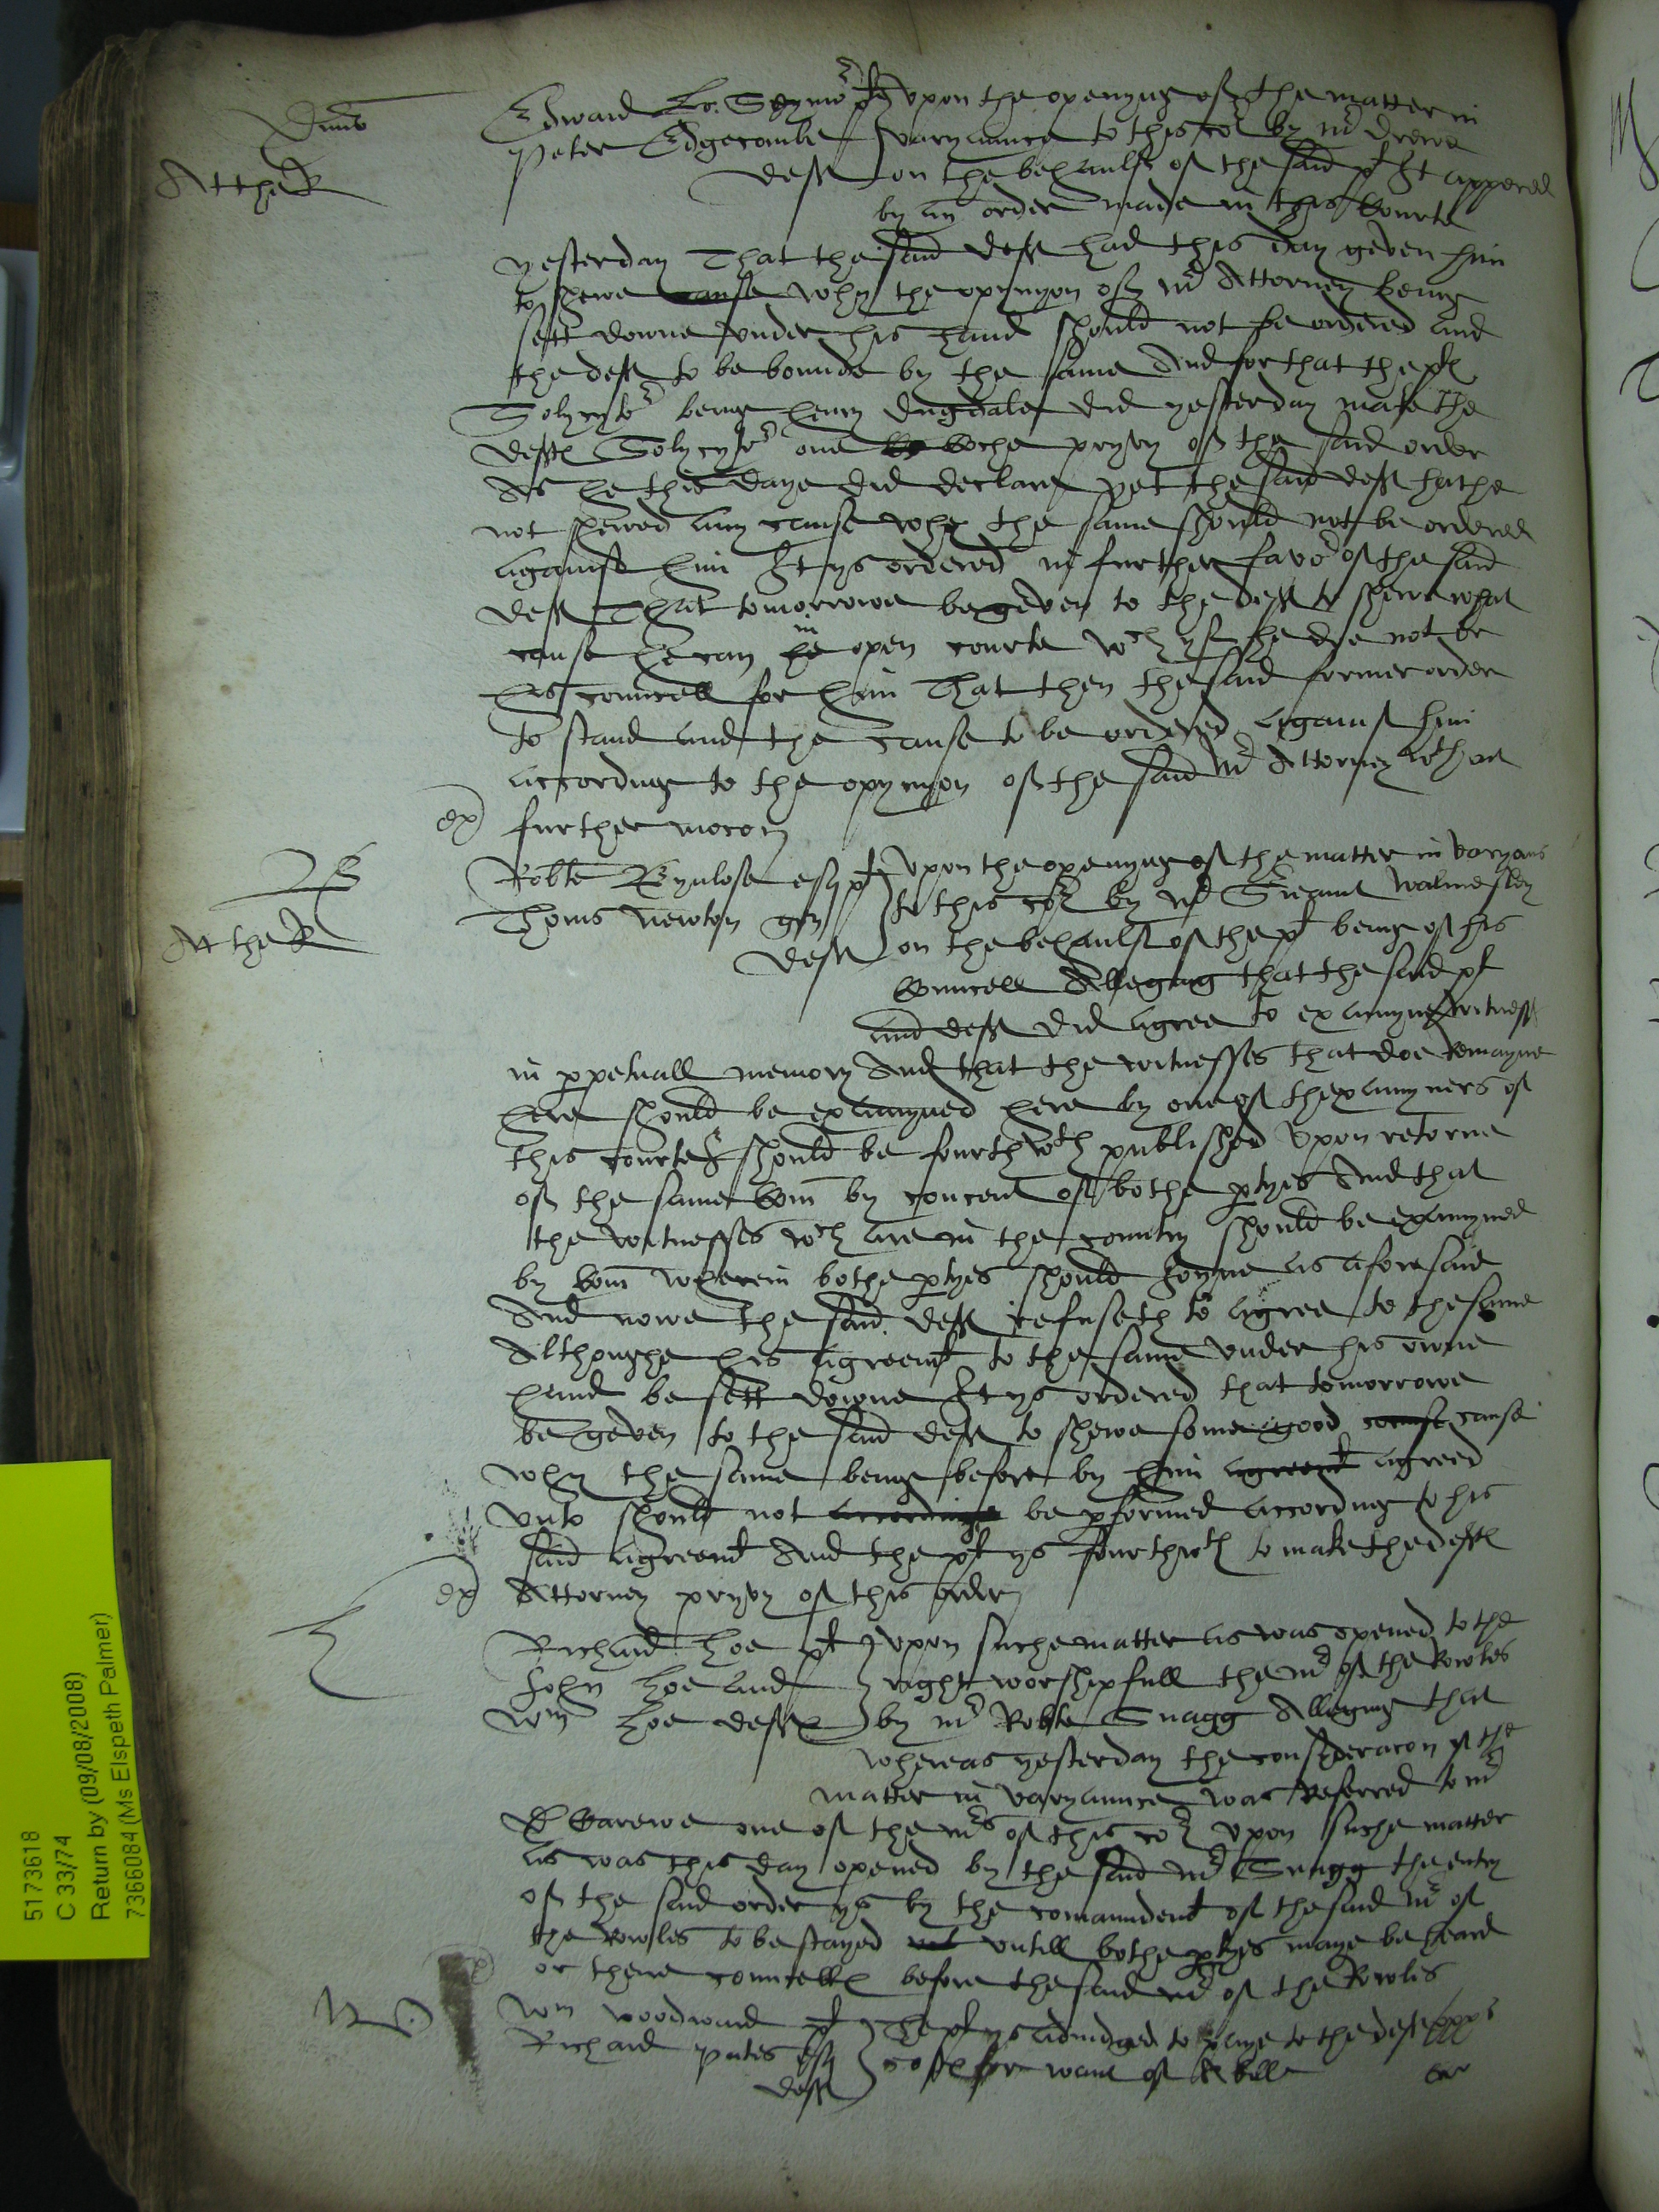 Edward Lo: Seymor pt upon the openynge of the matter in
Peter Edgecombe varyaunce to this cot by mr drewe
deft on the behaulf of the said pt It appered
Att the R
by an order made in this Courte
yesterday That the said deft had this day geven him
to shewe cause why the opynyon of mr Attorney being
sett downe under his hand should not be ordered and
the deft to be bounde by the same And for that the ptes
Solycytor being henry dugdale did yesterday make the
deftes Solycytor one Coche pryvy of the said order
As he this daye did declare yet the said deft hathe
not shewed any cause why the same should not be ordered
againste him It ys ordered in further favor of the said
deft That tomorrowe be geven to the deft to shewe what
cause he can in open courte wch yf he doe not or
his councell for him That then the said former order
to stand and the cause to be ordered against him
accordinge to the opynyon of the said mr Attorney wthout
ex further mocon
Robte esq pt upon the openynge of the matter in varyans
Thoms Newton gen to this cot by mr Sieaunt Walmesley
Att the R
deft on the behaulf of the pt being of his
Councell Alleging that the said pt
and deft did agree to examyne witness
in ppetuall memory And that the witnesses that doe Remayne
here should be examyned here by one of thexamyners of
this courte & should be fourthwth published upon retorne
of the same Com by concent of bothe ptyes And that
the witnesses wch are in the country should be examyned
by Com wherein bothe ptyes should Joyne as aforesaid
And nowe the said deft refuseth to agree to the same
Althoughe his agreemt to the same under his owne
hand be sett downe It ys ordered that tomorrowe
be geven to the said deft to shewe some good cause
why the same being before by him agreemt agreed
unto should not accordinge be pformed according to his
said agreemt And the pt ys fourthwth to make the deftes
ex Attorney pryvy of this order
Richard Loe pt upon suche matter as was opened to the
John Loe and right worshipfull the mr of the Rowles
Wm Loe deftes by mr Robte Snagg Alleging that
whereas yesterday the consideracon of the
matter in varyaunce was Referred to mr
D Carewe one of the mrs of this cot upon suche matter
as was this day opened by the said mr Snagg the entry
of the said order ys by the comaundemt of the said mr of
the Rowles to be stayed untill bothe ptyes maye be heard
or there councelles before the said mr of the Rowles
Wm woodward pt The pt ys adiudged to paye to the deft
Richard Pates esq costes for want of a bill
deft
5173618
C 33/74
Return by (09/08/2008)
7366084 (Ms Elspeth Palmer)